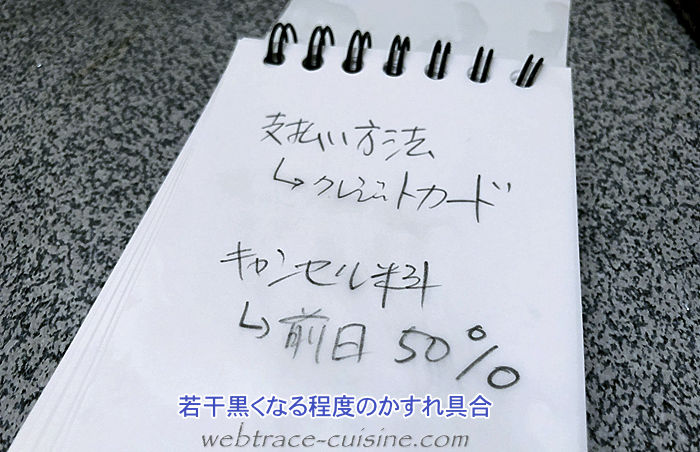 支払い方法
↳クレジットカード
キャンセル料
↳前日 50%
若干黒くなる程度のかすれ具合
webtrace-cuisine.com